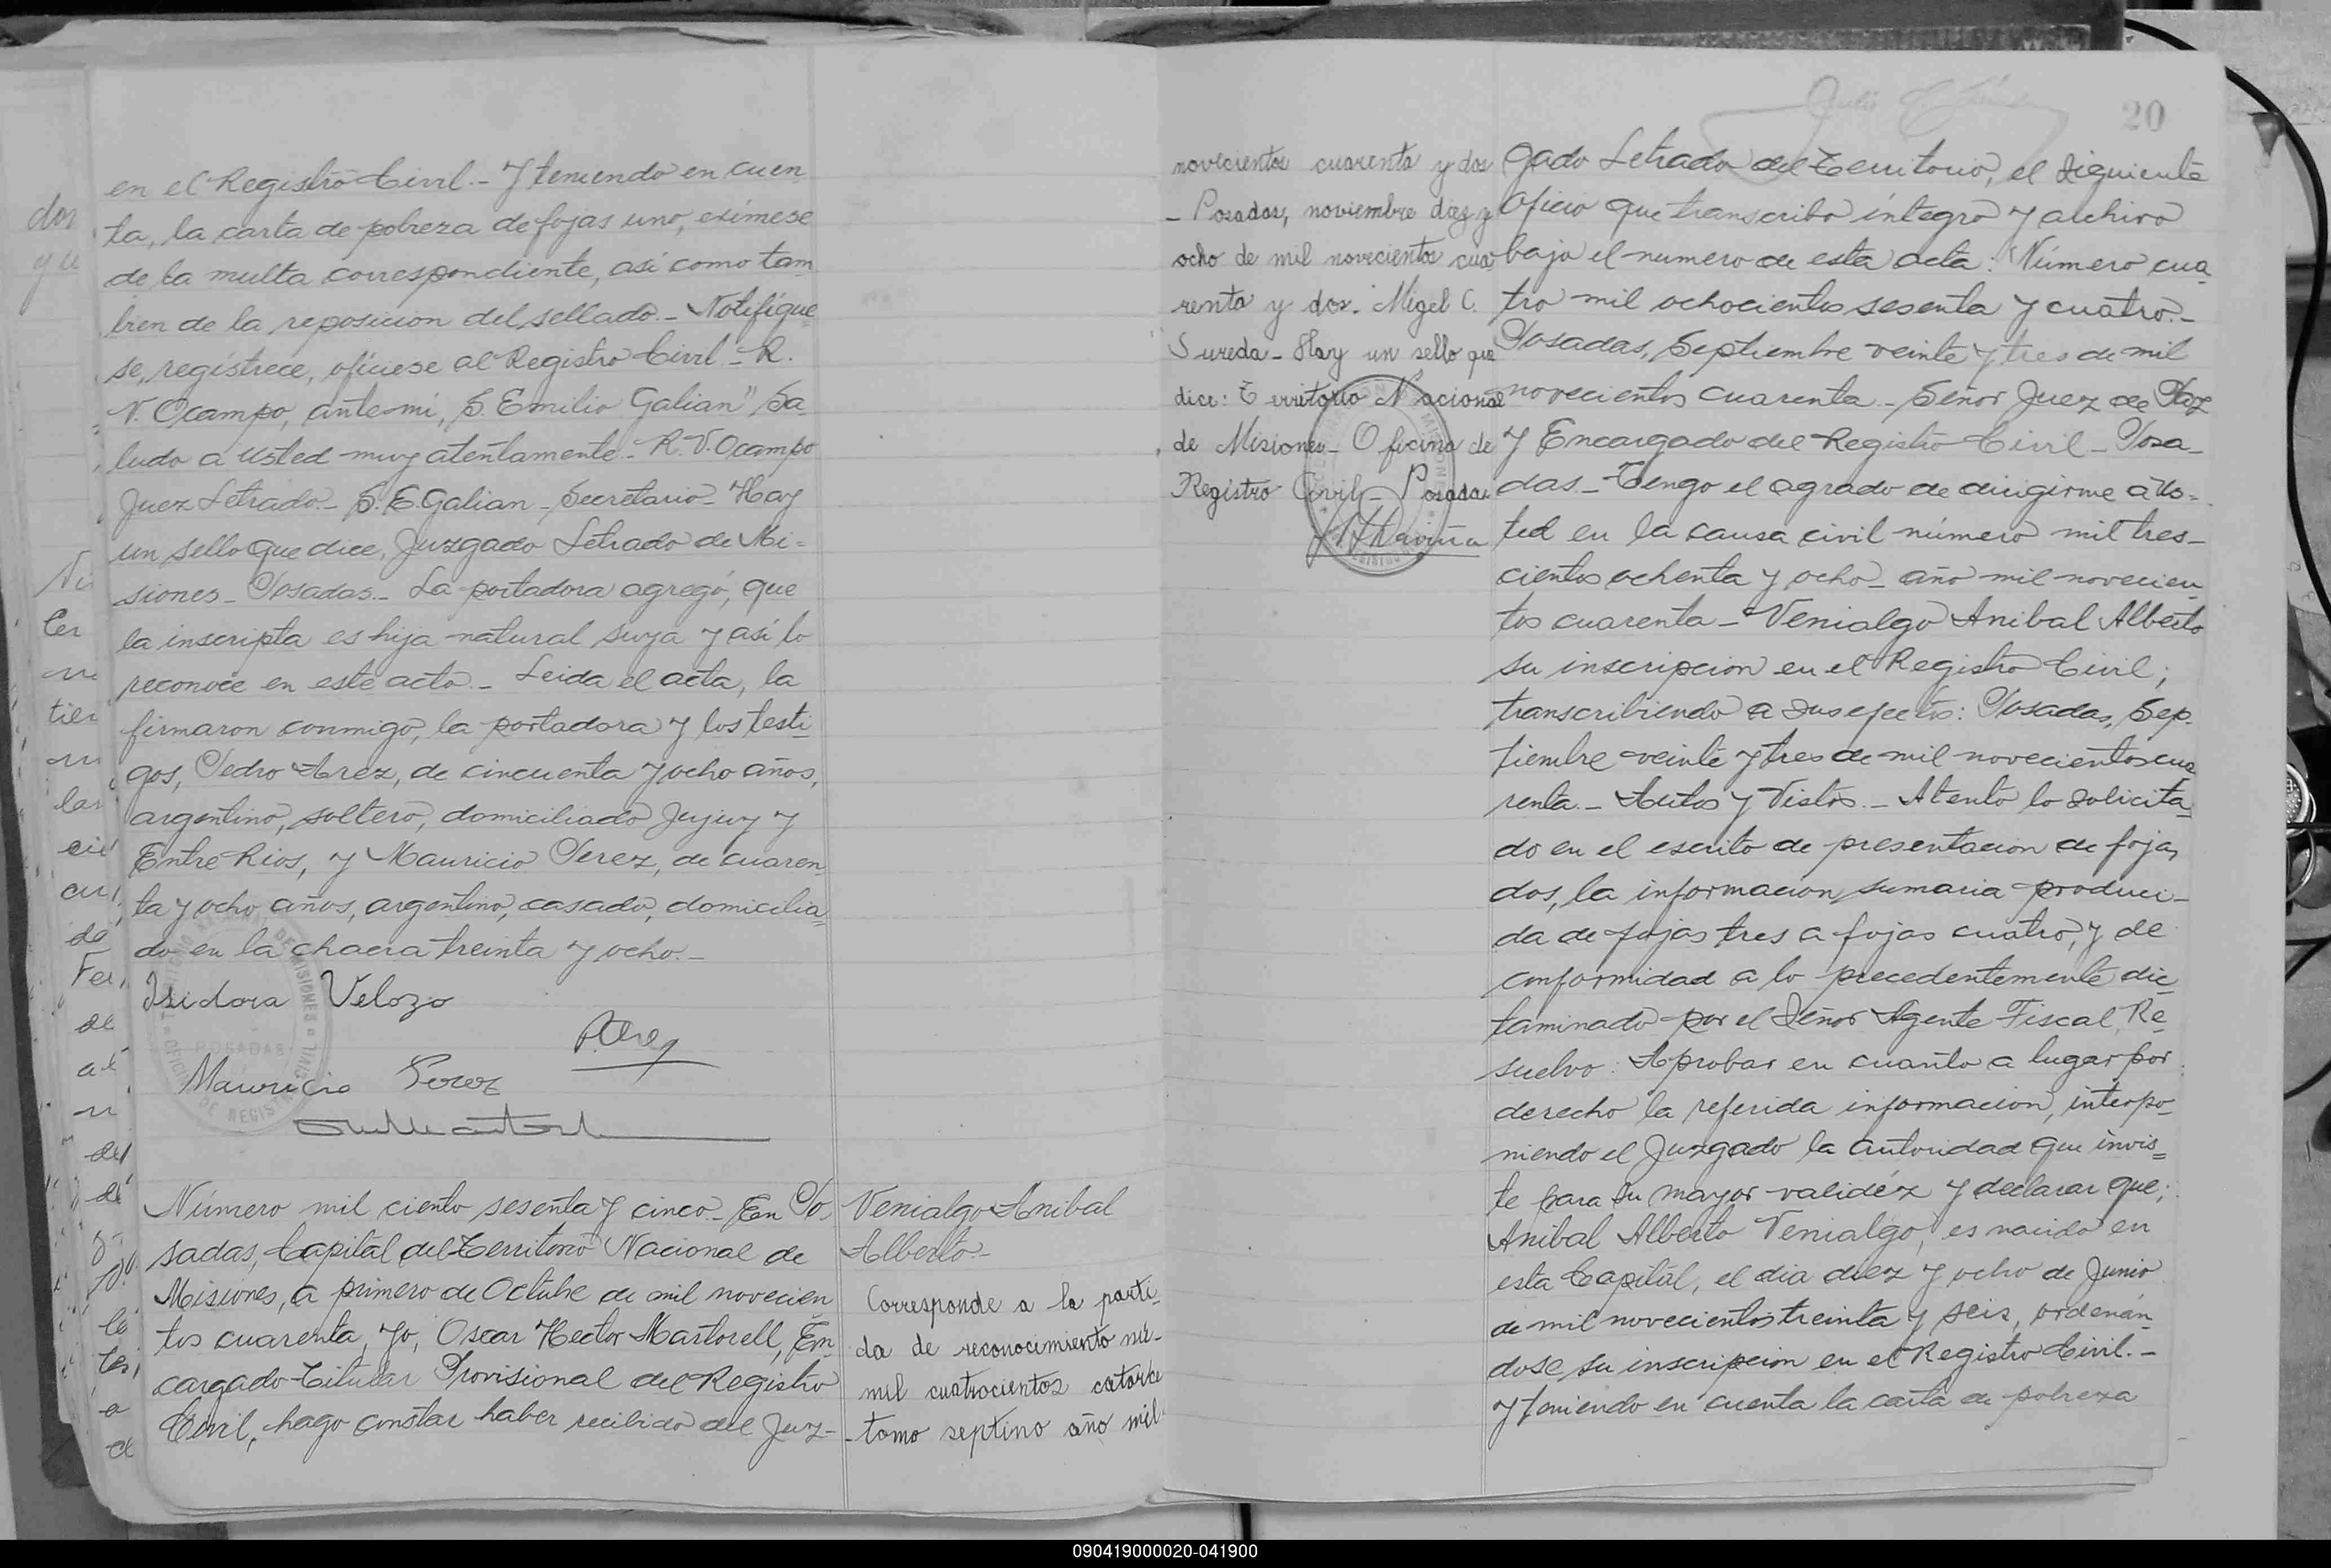 en el Registro Civil.- Y teniendo en cuen
ta, la carta de pobreza de fojas uno, exímese
de la multa correspondiente, así como tam
bien de la reposicion del sellado.- Notifíque
se, regístrece, ofíciese al Registro Civil.- R.
V. Ocampo, ante mí, S. Emilio Galian" Sa
ludo a Usted muy atentamente.- R. V. Ocampo
Juez Letrado.- S. E. Galian - Secretario - Hay
un sello que dice, Juzgado Letrado de Mi-
siones - Posadas.- La portadora agregó, que
la inscripta es hija natural suya y así lo
reconoce en este acto.- Leida el acta, la
firmaron conmigo, la portadora y los testi
gos, Pedro Arez, de cincuenta y ocho años,
argentino, soltero, domiciliado Jujuy y
Entre Rios, y Mauricio Perez, de cuaren
ta y ocho años, argentino, casado, domicilia
do en la chacra treinta y ocho.-
Isidora Velozo
P. Arez
Mauricio Perez
Número mil ciento sesenta y cinco.- En Po
sadas, Capital del Territorio Nacional de
Misiones, a primero de Octubre de mil novecien
tos cuarenta, yo, Oscar Hector Martorell, En
cargado Titular Provisional del Registro
Civil, hago constar haber recibido del Juz-
Venialgo Anibal
Alberto.-
Corresponde a la parti-
da de reconocimiento nú-
mil cuatrocientos catorce
- tomo septino año mil
novecientos cuarenta y dos
- Posadas, noviembre diez y
ocho de mil novecientos cua
renta y dos. Migel C.
Sureda - Hay un sello que
dice: Territorio Nacional
de Misiones - Oficina de
Registro Civil - Posadas
20
gado Letrado del Territorio, el siguiente
Oficio que transcribo íntegro y archivo
bajo el numero de esta acta: Número cua
tro mil ochocientos sesenta y cuatro.-
Posadas, Septiembre veinte y tres de mil
novecientos cuarenta - Señor Juez de Paz
y Encargado del Registro Civil - Posa-
das.- Tengo el agrado de dirigirme a Us-
ted en la causa civil número mil tres-
cientos ochenta y ocho - año mil novecien
tos cuarenta - Venialgo Anibal Alberto
su inscripcion en el Registro Civil;
transcribiendo a sus efectos: Posadas, Sep-
tiembre veinte y tres de mil novecientos cua
renta.- Autos y Vistos.- Atento lo solicita
do en el escrito de presentacion de fojas
dos, la informacion sumaria produci-
da de fojas tres a fojas cuatro, y de
conformidad a lo precedentemente dic
taminado por el Señor Agente Fiscal, Re
suelvo: Aprobar en cuanto a lugar por
derecho la referida informacion, interpo
niendo el Juzgado la autoridad que invis=
te para su mayor validéz y declarar que;
Anibal Alberto Venialgo, es nacido en
esta Capital, el dia diez y ocho de Junio
de mil novecientos treinta y seis, ordenán
dose su inscripcion en el Registro Civil.-
y teniendo en cuenta la carta de pobreza
090419000020-041900